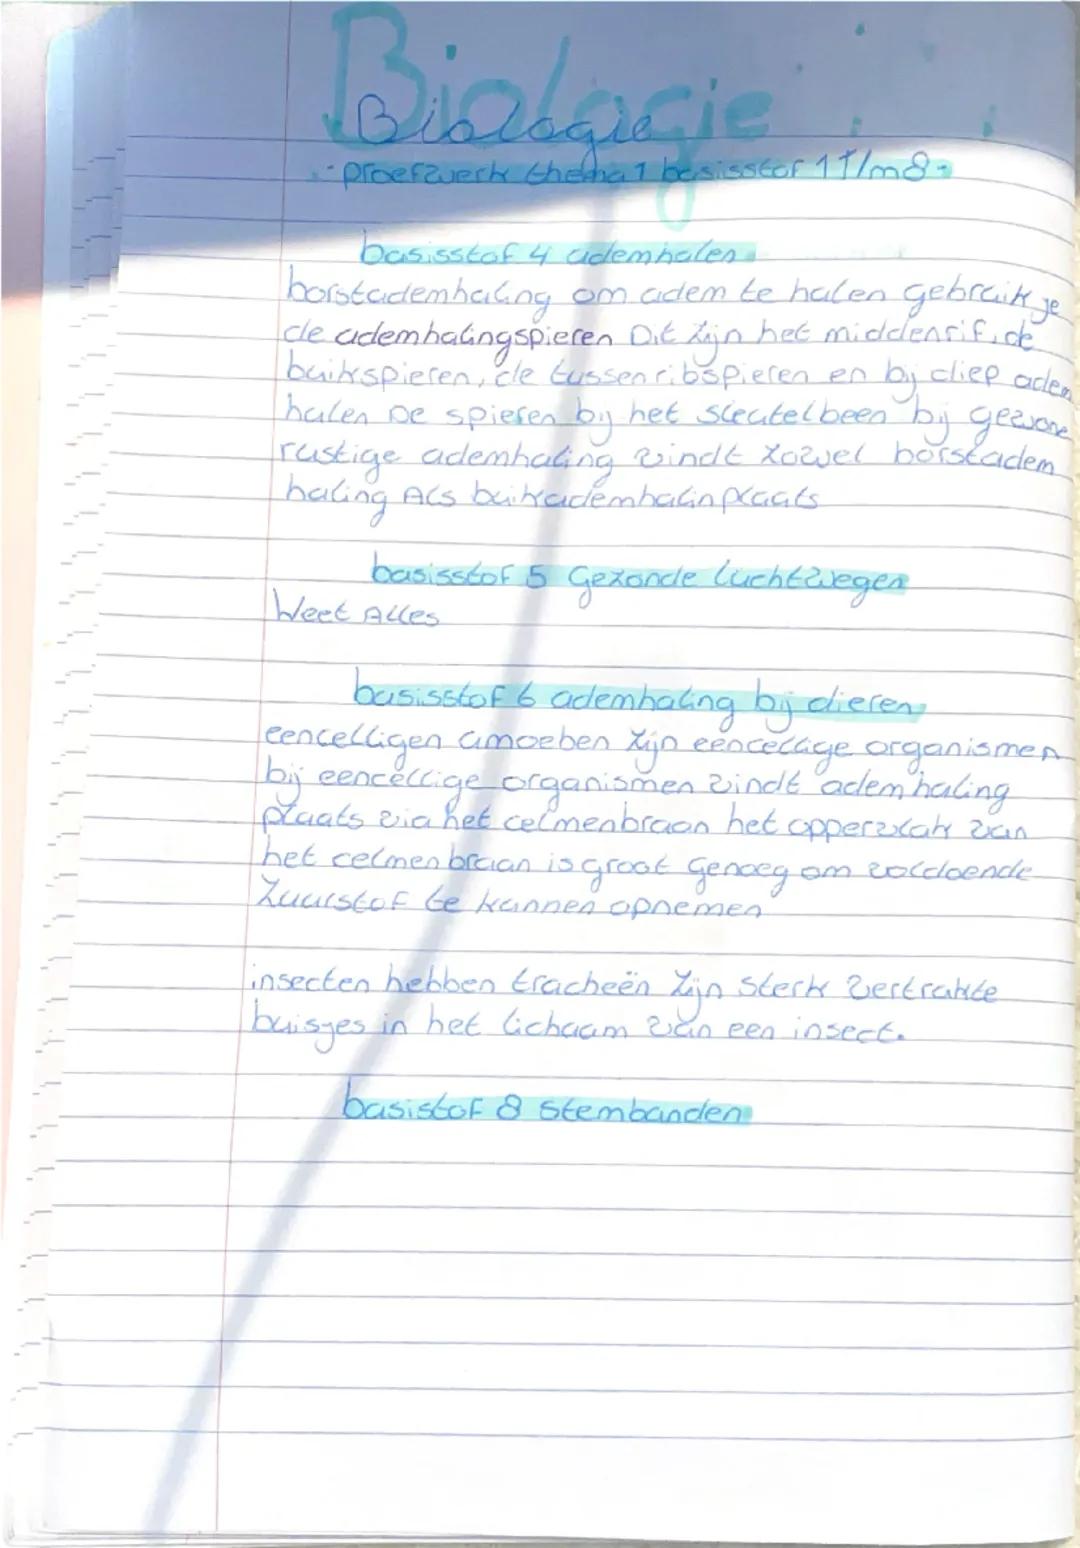 Biologie
Biologie
- proefzwerk thema 1 basisstof 1 T/m 8 -
basisstof 4 ademhalen
borstademhaling om adem te halen gebruik je
de ademhalingspieren Dit zijn het middenrif, de
buikspieren, de tussenribspieren en bij diep adem
halen De spieren bij het sleutelbeen bij gewone
rustige ademhaling vindt zowel borstadem
haling Als buikademhalin plaats
basisstof 5 Gezonde luchtwegen
Weet Alles
basisstof 6 ademhaling bij dieren
eencelligen amoeben zijn eencellige organismen
bij eencellige organismen vindt ademhaling
plaats via het celmenbraan het oppervlak van
het celmenbraan is groot Genoeg om voldoende
Zuurstof te kunnen opnemen
insecten hebben tracheën Zijn sterk vertrakte
buisjes in het lichaam van een insect.
basistof 8 stembanden